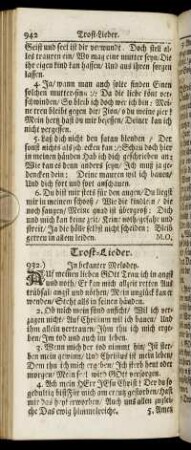 942 Trost-Lieder.
Geist und seel ist dir verwundt. Doch stell al-
les trauren ein/ Wo mag eine mutter seyn/ Die
ihr eigen kind kan hassen/ Und aus ihren sorgen
lassen.
4. Ja/ wann man auch solte finden Einen
solchen mutter-sinn/ Da die liebe könt ver-
schwinden/ So bleib ich doch wer ich bin/ Mei-
ne treu bleibet gegen dir Zion/ du meine zier/
Mein herz hast du mir besessen/ Deiner kan ich
nicht vergessen.
5. Laß dich nicht den satan blenden/ Der
sonst nichts als schrecken kan/ Schau doch hier
in meinen händen Hab ich dich geschrieben an/
Wie kan es dann anders seyn? Ich muß ja
gedencken dein/ Deine mauren will ich bauen/
Und dich fort und fort anschauen.
6. Du bist mir stets für den augen/ Du liegst
mir in meinem schooß/ Wie die kindlein/ die
noch saugen/ Meine treu ist übergroß; Dich
und mich kan keine zeit/ Keine noth gefahr und
streit/ Ja die hölle selbst nicht scheiden: Bleib
getreu in allem leiden. M.O.
Trost-Lieder.
In bekanter Melodey.
Auf meinen lieben GOtt Trau ich in angst
und noth/ Er kan mich allzeit retten Aus
trübsal/ angst und nöthen/ Mein unglück kan er
wenden/ Steht alls in seinen händen.
2. Ob mich mein sünd anficht/ Will ich ver-
zagen nicht/ Auf Christum will ich bauen/ Und
ihm allein vertrauen/ Ihm thu ich mich erge-
ben/ Im tod und auch im leben.
3. Wenn mich der tod nimmt hin/ Ist ster-
ben mein gewinn/ Und Christus ist mein leben/
Dem thu ich mich ergeben/ Ich sterb heut oder
morgen/ Mein seel wird GOtt versorgen.
4. Ach mein HErr JEsu Christ/ Der du so
gedultig bist Für mich am creutz gestorben/ Hast
mir das heyl erworben/ Auch uns allen zugleiche
Das ewig himmelreiche.
5. Amen